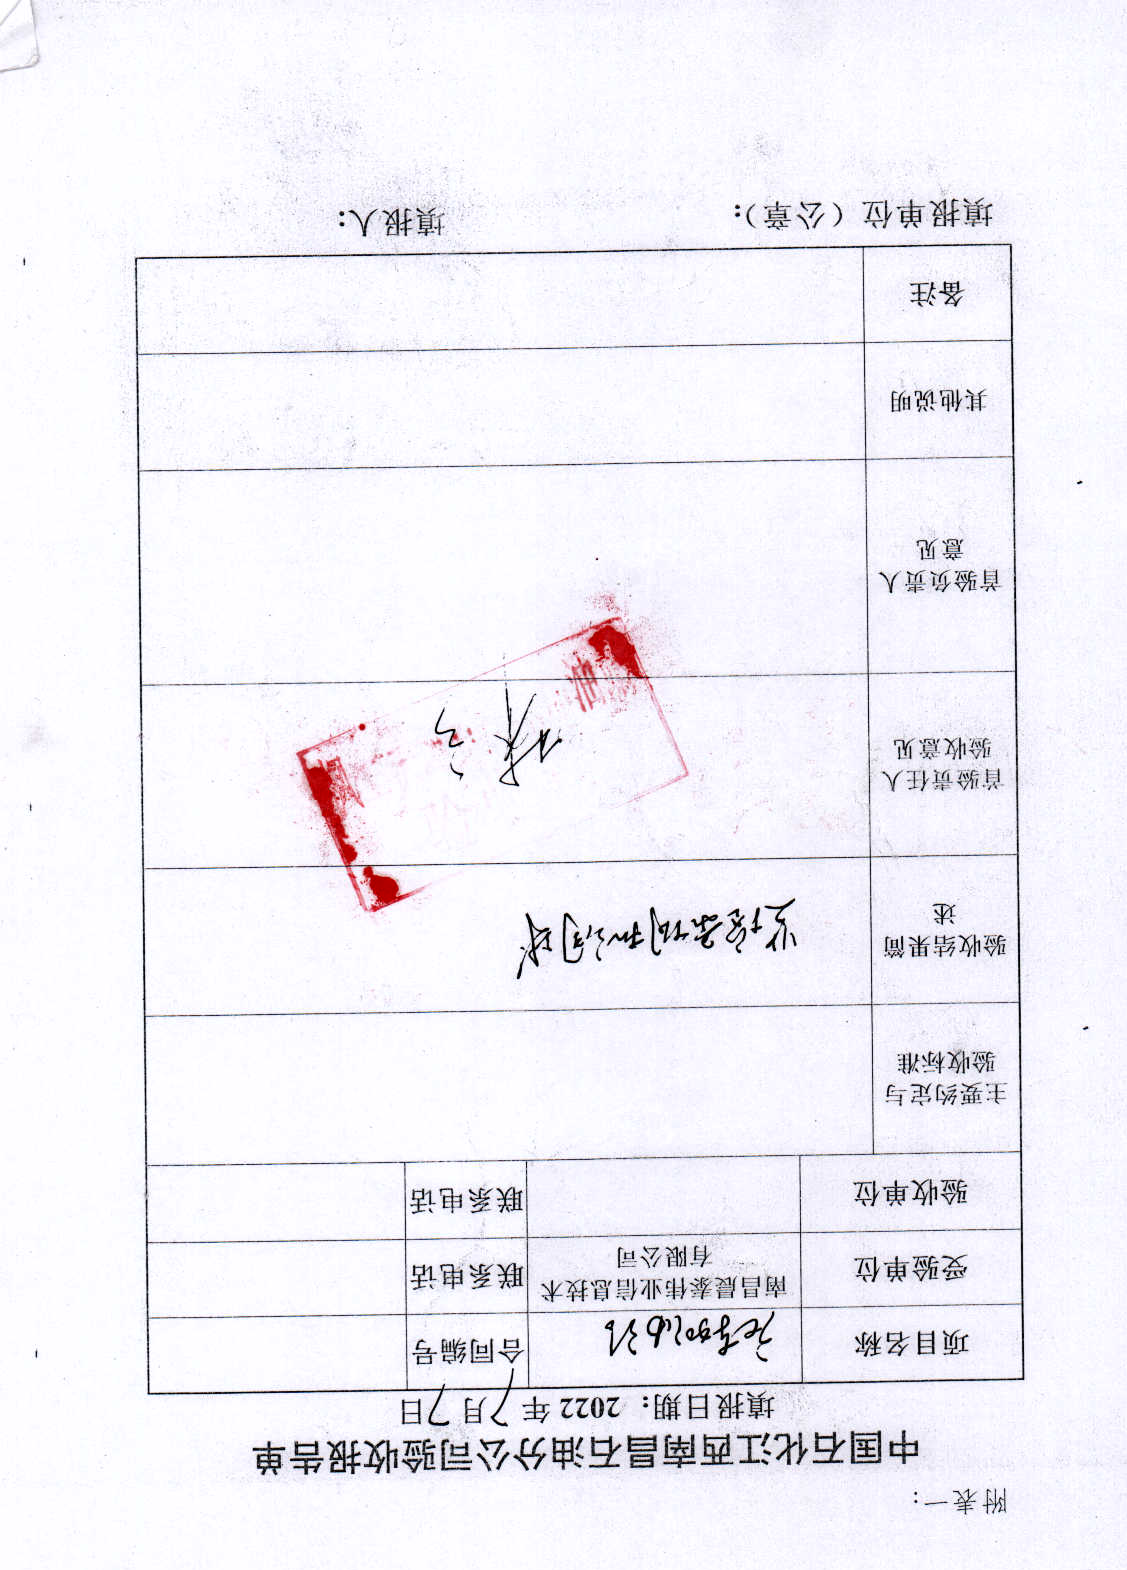 附表一：
中国石化江西南昌石油分公司验收报告单
填报日期：2022年7月7日
项目名称
合同编号
受验单位
南昌晨泰伟业信息技术
有限公司
联系电话
验收单位
联系电话
主要约定与
验收标准
验收结果简
述
首验责任人
验收意见
首验负责人
意见
其他说明
备注
填报单位（公章）：
填报人：